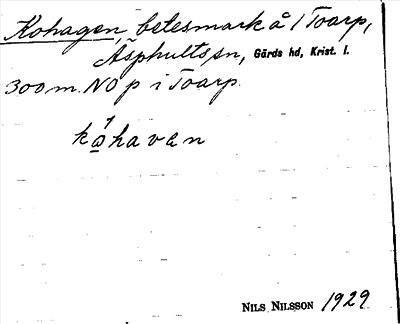 Kohagen, betesmark å 1 Toarp,
Äsphults sn, Gärds hd, Krist. l.
300 m. NO p i Toarp.
kohaven
NILS NILSSON 1929